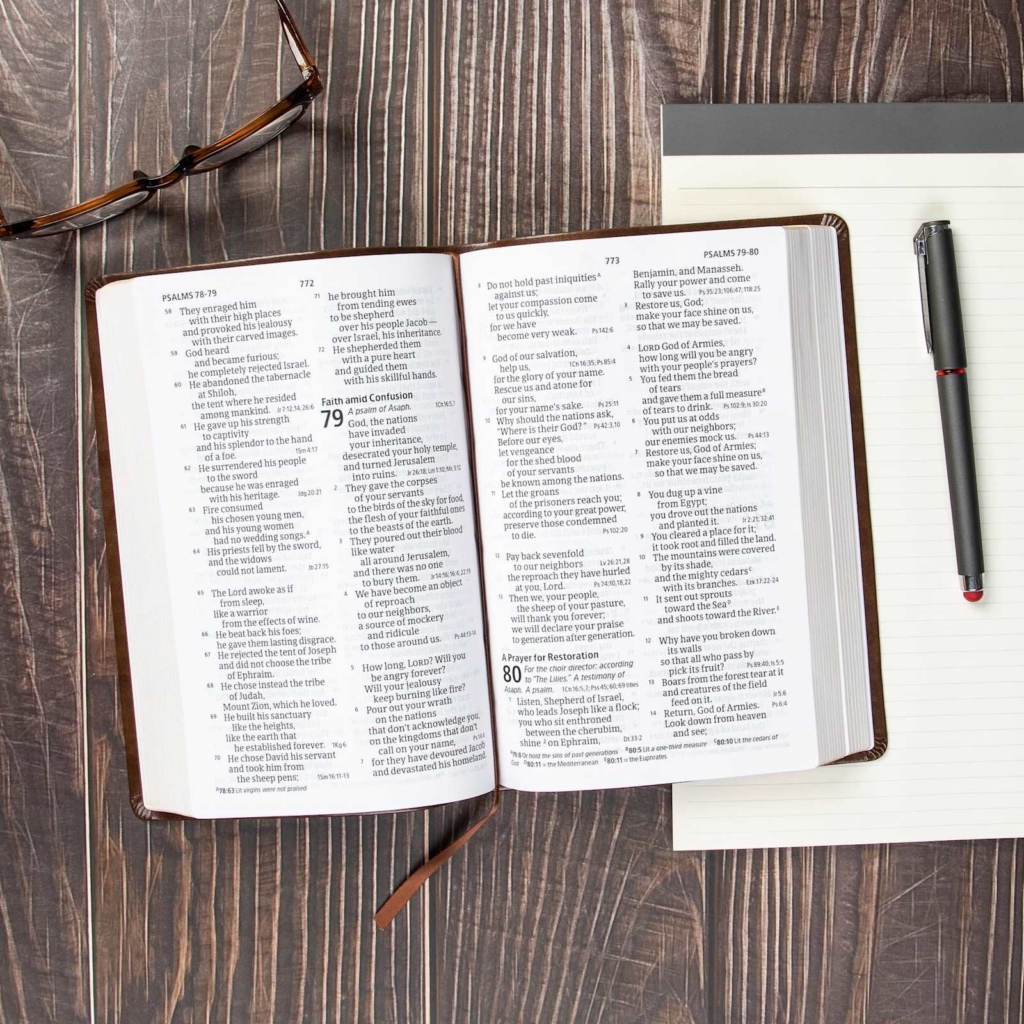 PSALMS 78-79
772
58 They enraged him
with their high places
and provoked his jealousy
with their carved images.
59 God heard
and became furious;
he completely rejected Israel.
60 He abandoned the tabernacle
at Shiloh,
the tent where he resided
among mankind. Jr 7:12,14; 26:6
61 He gave up his strength
to captivity
and his splendor to the hand
of a foe. 1Sm 4:17
62 He surrendered his people
to the sword
because he was enraged
with his heritage. Jdg 20:21
63 Fire consumed
his chosen young men,
and his young women
had no wedding songs.A
64 His priests fell by the sword,
and the widows
could not lament. Jb 27:15
65 The Lord awoke as if
from sleep,
like a warrior
from the effects of wine.
66 He beat back his foes;
he gave them lasting disgrace.
67 He rejected the tent of Joseph
and did not choose the tribe
of Ephraim.
68 He chose instead the tribe
of Judah,
Mount Zion, which he loved.
69 He built his sanctuary
like the heights,
like the earth that
he established forever. 1Kg 6
70 He chose David his servant
and took him from
the sheep pens; 1Sm 16:11-13
A78:63 Lit virgins were not praised
71 he brought him
from tending ewes
to be shepherd
over his people Jacob —
over Israel, his inheritance.
72 He shepherded them
with a pure heart
and guided them
with his skillful hands.
Faith amid Confusion
79 A psalm of Asaph. 1Ch 16:5,7
God, the nations
have invaded
your inheritance,
desecrated your holy temple,
and turned Jerusalem
into ruins. Jr 26:18; Lm 1:10; Mc 3:12
2 They gave the corpses
of your servants
to the birds of the sky for food,
the flesh of your faithful ones
to the beasts of the earth.
3 They poured out their blood
like water
all around Jerusalem,
and there was no one
to bury them. Jr 14:16; 16:4; 22:19
4 We have become an object
of reproach
to our neighbors,
a source of mockery
and ridicule
to those around us. Ps 44:13-14
5 How long, LORD? Will you
be angry forever?
Will your jealousy
keep burning like fire?
6 Pour out your wrath
on the nations
that don't acknowledge you,
on the kingdoms that don't
call on your name,
7 for they have devoured Jacob
and devastated his homeland.
773
PSALMS 79-80
8 Do not hold past iniquitiesA
against us;
let your compassion come
to us quickly,
for we have
become very weak. Ps 142:6
9 God of our salvation,
help us, 1Ch 16:35; Ps 85:4
for the glory of your name.
Rescue us and atone for
our sins,
for your name's sake. Ps 25:11
10 Why should the nations ask,
"Where is their God?" Ps 42:3,10
Before our eyes,
let vengeance
for the shed blood
of your servants
be known among the nations.
11 Let the groans
of the prisoners reach you;
according to your great power,
preserve those condemned
to die. Ps 102:20
12 Pay back sevenfold
to our neighbors Lv 26:21,28
the reproach they have hurled
at you, Lord. Ps 74:10,18,22
13 Then we, your people,
the sheep of your pasture,
will thank you forever;
we will declare your praise
to generation after generation.
A Prayer for Restoration
80 For the choir director: according
to "The Lilies." A testimony of
Asaph. A psalm. 1Ch 16:5,7; Pss 45; 60; 69 titles
1 Listen, Shepherd of Israel,
who leads Joseph like a flock;
you who sit enthroned
between the cherubim,
shine 2 on Ephraim, Dt 33:2
Benjamin, and Manasseh.
Rally your power and come
to save us. Ps 35:23; 106:47; 118:25
3 Restore us, God;
make your face shine on us,
so that we may be saved.
4 LORD God of Armies,
how long will you be angry
with your people's prayers?
5 You fed them the bread
of tears
and gave them a full measureB
of tears to drink. Ps 102:9; Is 30:20
6 You put us at odds
with our neighbors;
our enemies mock us. Ps 44:13
7 Restore us, God of Armies;
make your face shine on us,
so that we may be saved.
8 You dug up a vine
from Egypt;
you drove out the nations
and planted it. Jr 2:21; 32:41
9 You cleared a place for it;
it took root and filled the land.
10 The mountains were covered
by its shade,
and the mighty cedarsC
with its branches. Ezk 17:22-24
11 It sent out sprouts
toward the SeaD
and shoots toward the River.E
12 Why have you broken down
its walls
so that all who pass by
pick its fruit? Ps 89:40; Is 5:5
13 Boars from the forest tear at it
and creatures of the field
feed on it. Jr 5:6
14 Return, God of Armies. Ps 6:4
Look down from heaven
and see;
A79:8 Or hold the sins of past generations B80:5 Lit a one-third measure C80:10 Lit the cedars of
God D80:11 = the Mediterranean E80:11 = the Euphrates